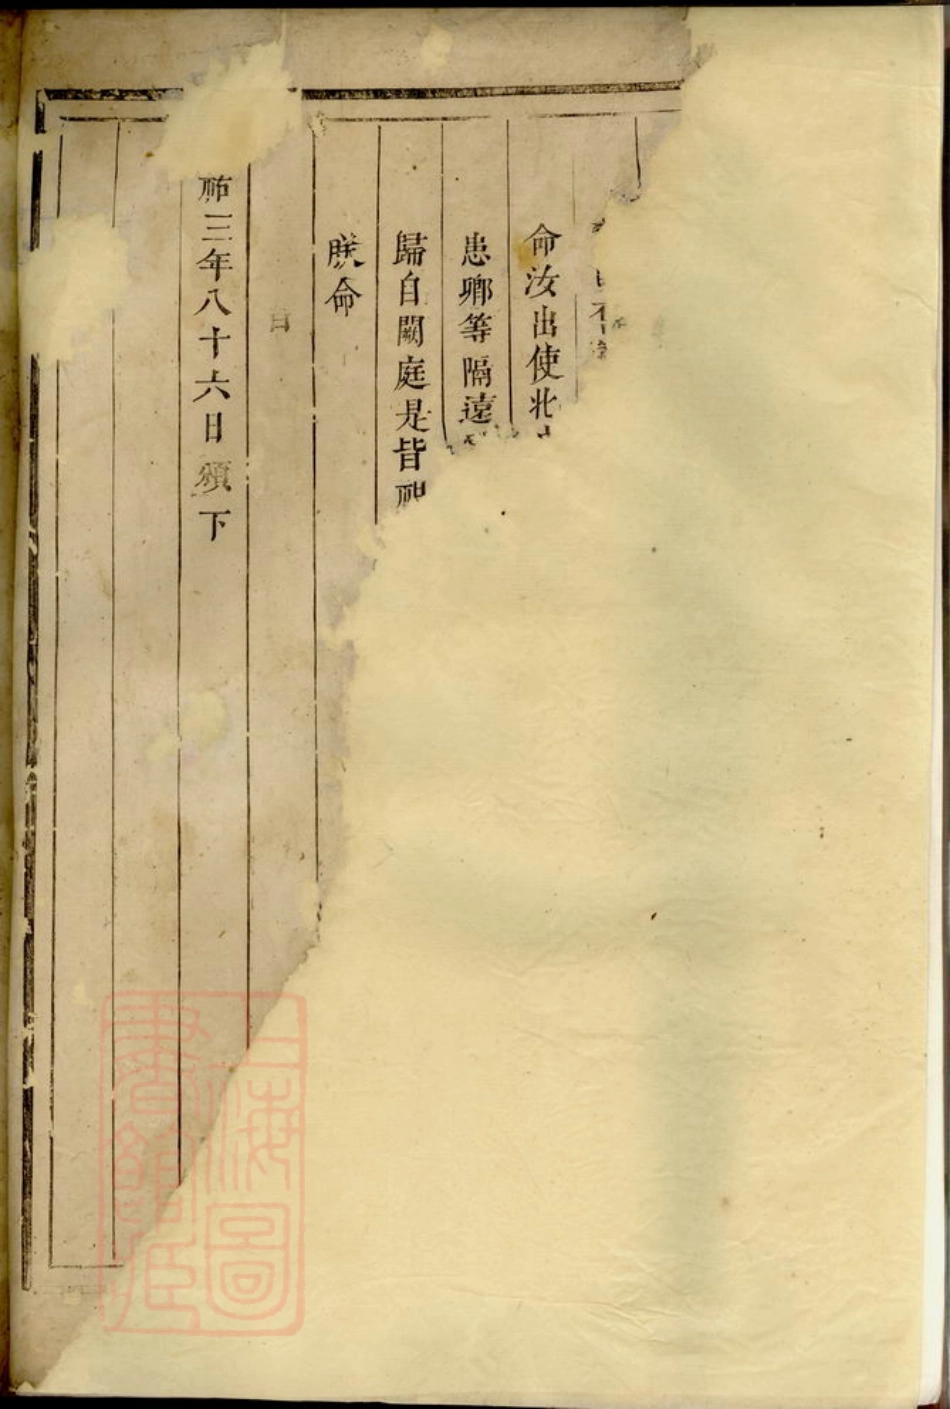 不
命汝出使北
患鄉等隔遠
歸自闕庭是皆
朕命
日
祐三年八十六日頒下
上海圖書館藏